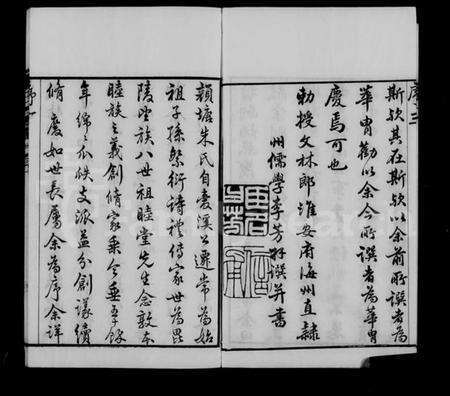 斯歟其在斯歟以余前所譔者為
華冑勸以余今所譔者為華冑
慶焉可也
勅授文林郎淮安府海州直隸
州儒學李芳譔并書
賴塘朱氏自愛溪公遷常為始
祖子孫繁衍詩禮傳家世為毘
陵望族八世祖睦堂先生念敦本
睦族之義創脩家乘今垂百餘
年綿綿瓜帙支派益分創議續
脩 慶如世長屬余為序余詳